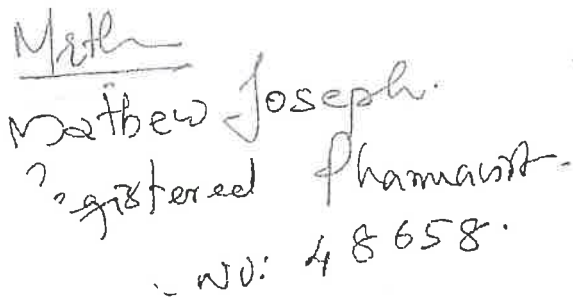 Mathew Joseph.
Registered Pharmacist.
No: 48658.